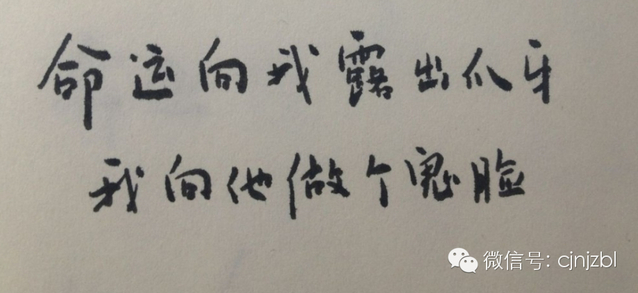 命运向我露出爪牙
我向他做个鬼脸
微信号: cjnjzbl